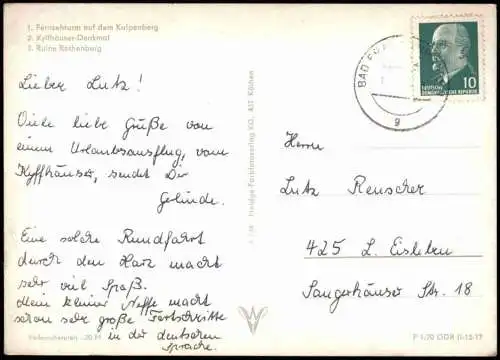 1. Fernsehturm auf dem Kulpenberg
2. Kyffhäuser-Denkmal
3. Ruine Rothenburg
Lieber Lutz!
Viele liebe Grüße von
einem Urlaubsausflug, vom
Kyffhäuser, sendet Dir
Gerlinde.
Eine solche Rundfahrt
durch den Harz macht
sehr viel Spaß.
Mein kleiner Neffe macht
schon sehr große Fortschritte
in der deutschen
Sprache.
BAD
g
10
DEUTSCHE
DEMOKRATISCHE REPUBLIK
Herrn
Lutz Renscher
425 L. Eisleben
Sangerhäuser Str. 18
KG, 437 Köthen
P 1/70 DDR